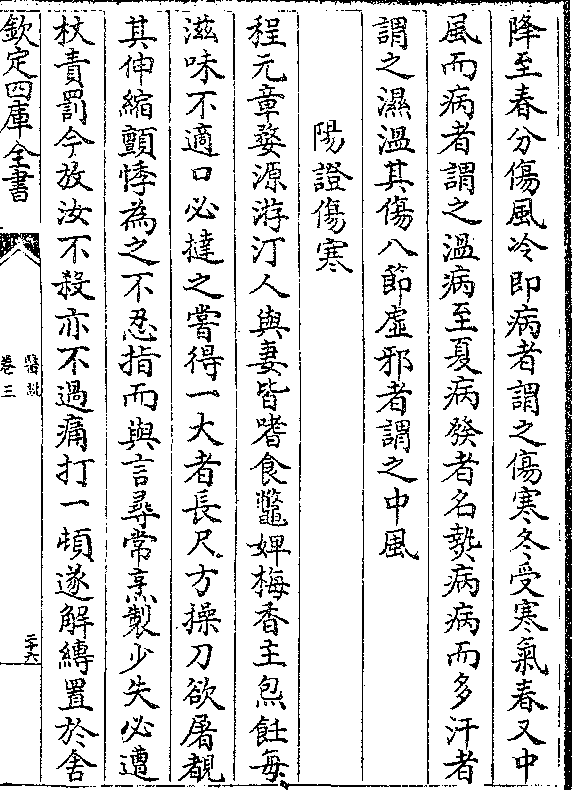 降至春分傷風冷即病者謂之傷寒冬受寒氣春又中
風而病者謂之溫病至夏病發者名熱病病而多汗者
謂之濕溫其傷八節虛邪者謂之中風
陽證傷寒
程元章婺源游汀人與妻皆嗜食鼈婢梅香主炰飪每
滋味不適口必撻之嘗得一大者長尺方操刀欲屠覩
其伸縮顫悸為之不忍指而與言尋常烹製少失必遭
杖責罰今放汝不殺亦不過痛打一頓遂解縛置於舍
欽定四庫全書
醫説
卷三
二十六